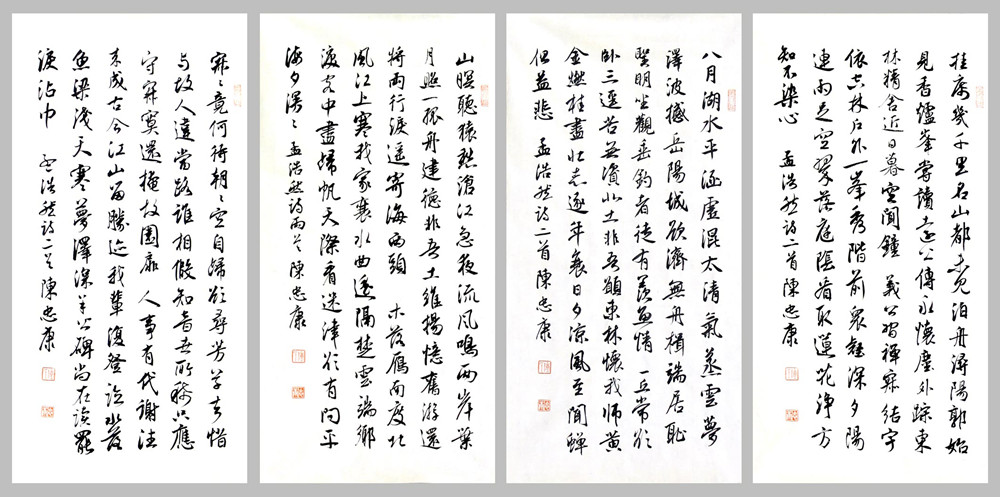 挂席幾千里名山都未見泊舟潯陽郭始
見香爐峯嘗讀遠公傳永懷塵外蹤東
林精舍近日暮空聞鐘 義公習禪寂結宇
依空林戶外一峯秀階前衆壑深夕陽
連雨足空翠落庭陰看取蓮花淨方
知不染心 孟浩然詩二首陳忠康
八月湖水平涵虛混太清氣蒸雲夢
澤波撼岳陽城欲濟無舟楫端居恥
聖明坐觀垂釣者徒有羨魚情 一丘常欲
卧三逕苦無資北土非吾願東林懷我師黃
金燃桂盡壯志逐年衰日夕涼風至聞蟬
但益悲 孟浩然詩二首陳忠康
山暝聽猿愁滄江急夜流風鳴兩岸葉
月照一孤舟建德非吾土維揚憶舊游還
將兩行淚遥寄海西頭 木落雁南度北
風江上寒我家襄水曲遥隔楚雲端鄉
淚客中盡歸帆天際看迷津欲有問平
海夕漫〻 孟浩然詩兩首陳忠康
寂〻竟何待朝〻空自歸欲尋芳草去惜
与故人違當路誰相假知音世所稀只應
守寂寞還掩故園扉 人事有代謝往
來成古今江山留勝迹我輩復登臨水落
魚梁淺天寒夢澤深羊公碑尚在讀罷
淚沾巾 孟浩然詩二首陳忠康